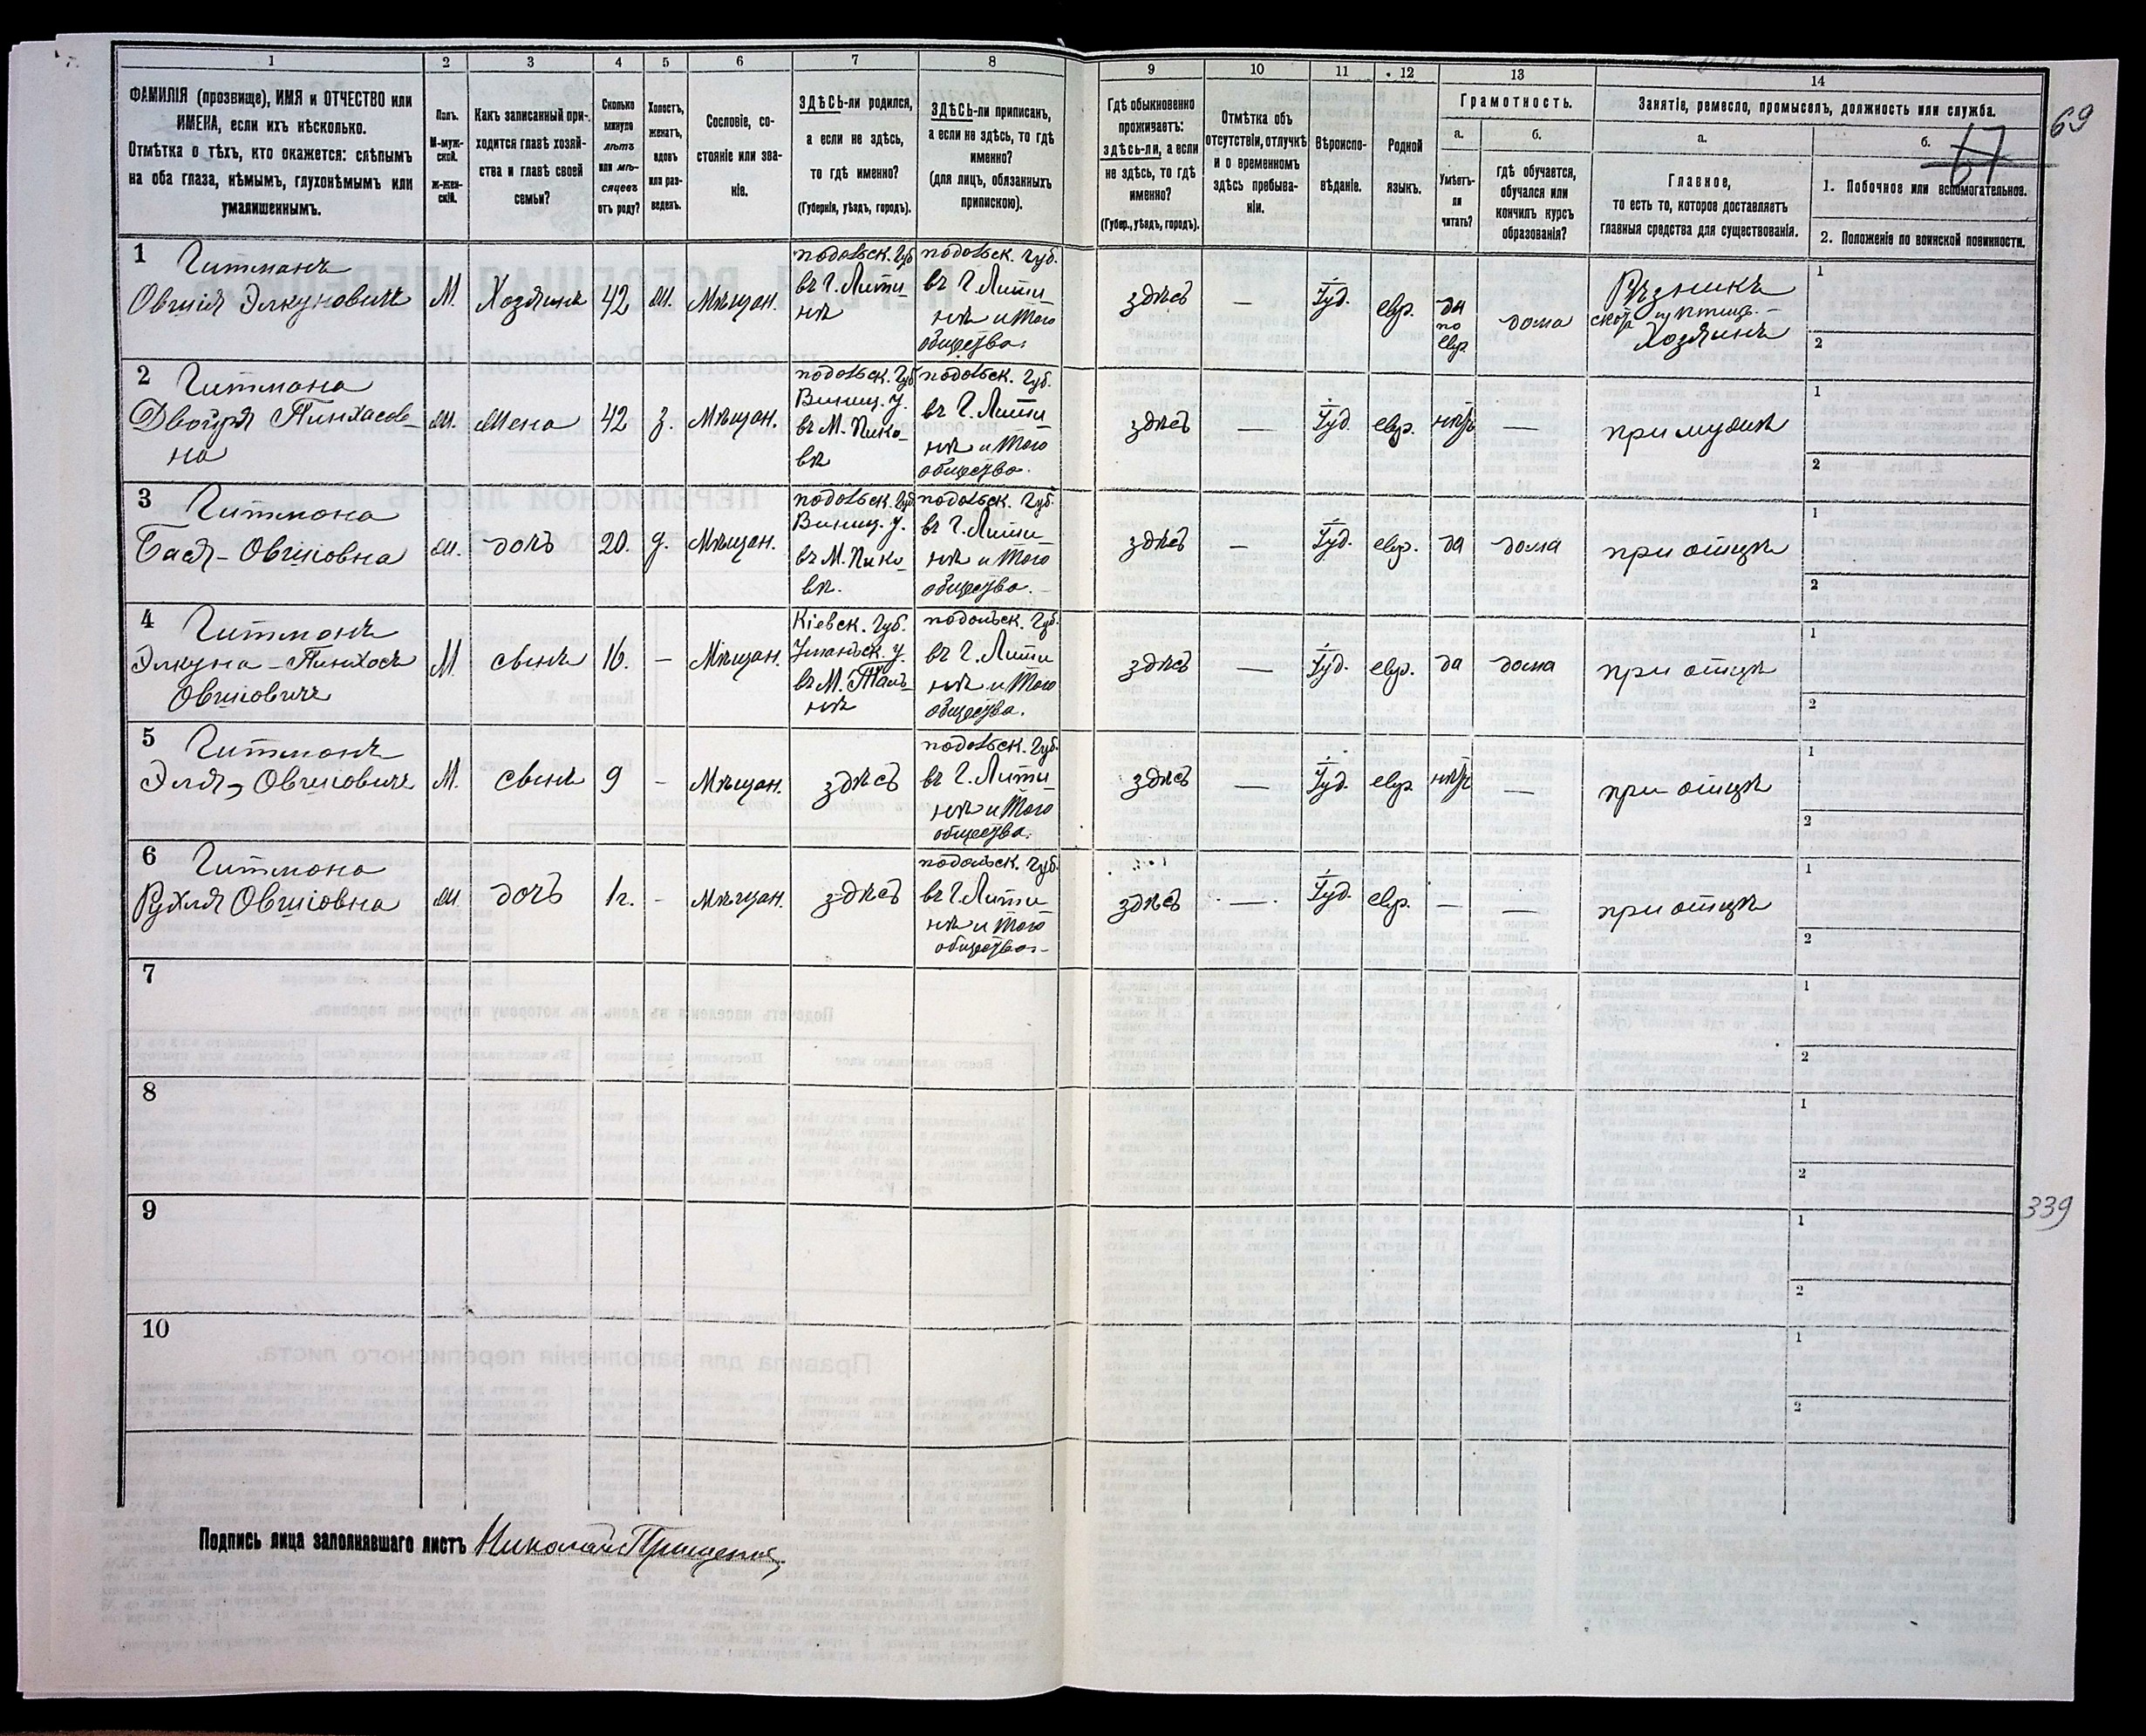 1
2
3
4
5
6
7
8
9
10
11
12
13
14
69
67
ФАМИЛІЯ (прозвище), ИМЯ и ОТЧЕСТВО или
ИМЕНА, если ихъ нѣсколько.
Отмѣтка о тѣхъ, кто окажется: слѣпымъ
на оба глаза, нѣмымъ, глухонѣмымъ или
умалишеннымъ.
Полъ.
М-муж-
ской.
ж-жен-
скій.
Какъ записанный при-
ходится главѣ хозяй-
ства и главѣ своей
семьи?
Сколько
минуло
лѣтъ
или мѣ-
сяцевъ
отъ роду?
Холостъ,
женатъ,
вдовъ
или раз-
веденъ.
Сословіе, со-
стояніе или зва-
ніе.
ЗДѢСЬ-ли родился,
а если не здѣсь,
то гдѣ именно?
(Губернія, уѣздъ, городъ).
ЗДѢСЬ-ли приписанъ,
а если не здѣсь, то гдѣ
именно?
(для лицъ, обязанныхъ
припискою).
Гдѣ обыкновенно
проживаетъ:
здѣсь-ли, а если
не здѣсь, то гдѣ
именно?
(Губер., уѣздъ, городъ).
Отмѣтка объ
отсутствіи, отлучкѣ
и о временномъ
здѣсь пребыва-
ніи.
Вѣроиспо-
вѣданіе.
Родной
языкъ.
Грамотность.
а.
Умѣетъ-
ли
читать?
б.
гдѣ обучается,
обучался или
кончилъ курсъ
образованія?
Занятіе, ремесло, промыселъ, должность или служба.
а.
Главное,
то есть то, которое доставляетъ
главныя средства для существованія.
б.
1. Побочное или вспомогательное.
2. Положеніе по воинской повинности.
1
Гитманъ
Овшія Элкуновичъ
М.
Хозяинъ
42
ж.
Мѣщан.
подольск. Губ
въ Г. Лити-
нѣ
подольск. Губ.
въ Г. Лити-
нѣ и Того
общества.
здѣсь
—
Іуд.
евр.
да
по
евр.
дома
Рѣзникъ
скота и птиц. -
Хозяинъ
1
2
2
Гитмана
Двойря Пинхасов-
на
ж.
Жена
42
з.
Мѣщан.
подольск. Губ
Винниц. у.
въ М. Пико-
вѣ
подольск. Губ.
въ Г. Лити
нѣ и Того
общества.
здѣсь
—
Іуд.
евр.
нѣтъ
—
при мужѣ
1
2
3
Гитмана
Бася - Овшіовна
ж.
дочь
20.
д.
Мѣщан.
подольск. Губ.
Винниц. у.
въ М. Пико-
вѣ.
подольск. Губ.
въ Г. Лити-
нѣ и Того
общества.
здѣсь
—
Іуд.
евр.
да
дома
при отцѣ
1
2
4
Гитманъ
Элкуна - Пинхосъ
Овшіовичъ
М
свинъ
16.
—
Мѣщан.
Кіевск. Губ.
Уманьск. у.
въ М. Таль-
нѣ
подольск. Губ.
въ Г. Лити
нѣ и Того
общества.
здѣсь
—
Іуд.
евр.
да
дома
при отцѣ
1
2
5
Гитманъ
Эля, Овшіовичъ
М.
свинъ
9
-
Мѣщан.
здѣсь
подольск. Губ.
въ Г. Лити
нѣ и Того
общества.
здѣсь
—
Іуд.
евр.
нѣтъ
—
при отцѣ
1
2
6
Гитмана
Рухля Овшіовна
ж.
дочь
1г.
-
Мѣщан.
здѣсь
подольск. Губ.
въ Г. Лити
нѣ и Того
общества-
здѣсь
—
Іуд.
евр.
—
—
при отцѣ
1
2
7
1
2
8
1
2
9
1
2
339
10
1
2
Подпись лица заполнявшаго листъ Николай